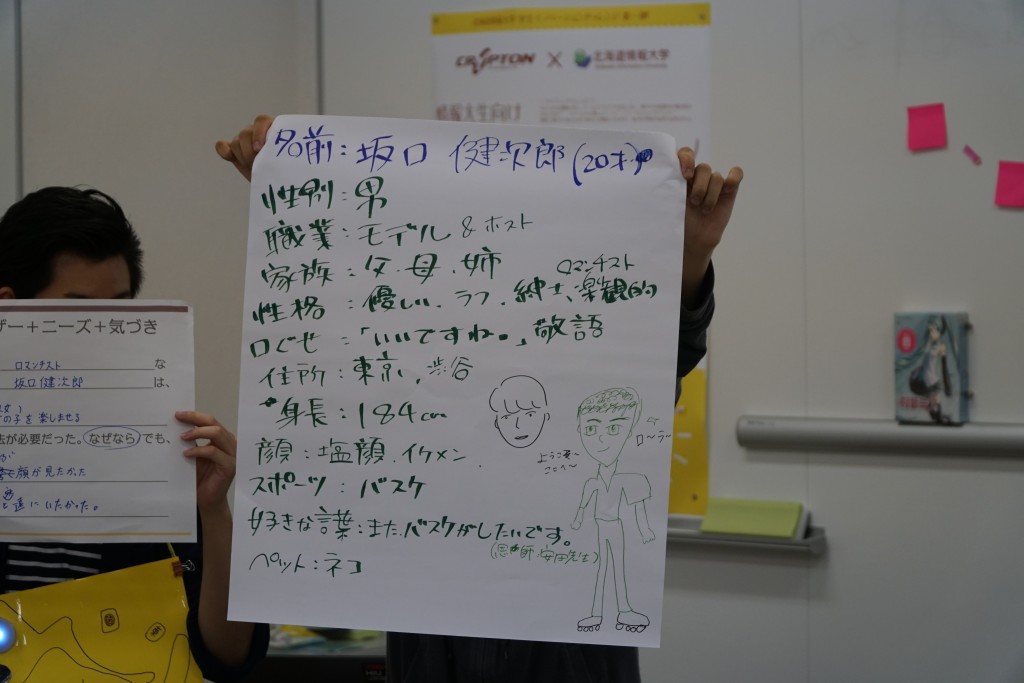 CRYPTON × 北海道情報大学
情報大生向け
名前：坂口 健次郎(20才)
性別：男
職業：モデル & ホスト
家族：父・母・姉
ロマンチスト
性格：優しい、ラフ、紳士、楽観的
口ぐせ：「いいですね。」敬語
住所：東京、渋谷
身長：184cm
顔：塩顔、イケメン
スポーツ：バスケ
好きな言葉：また、バスケがしたいです。
(恩師：安田先生)
ペット：ネコ
ようこそ〜
ここへ〜
ロ〜ラ〜
ザー＋ニーズ＋気づき
ロマンチスト な
坂口健次郎 は、
の子を楽しませる
法が必要だった。なぜなら でも、
顔が見たかった
と逢にいたかった。